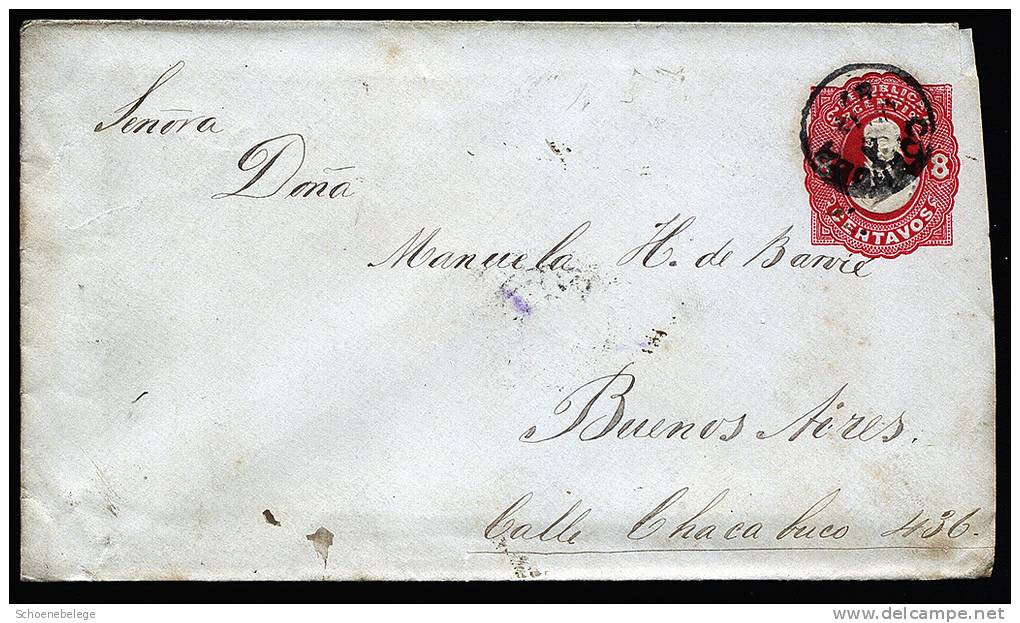 Señora
Doña
Manuela H. de Barvié
Buenos Aires.
Calle Chacabuco 436.
REPUBLICA
ARGENTINA
8
CENTAVOS
Schoenebelege
www.delcampe.net